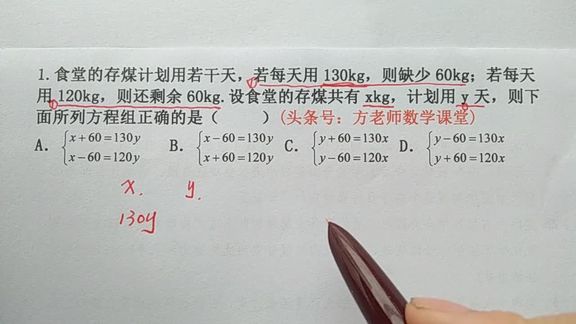 1.食堂的存煤计划用若干天，若每天用130kg，则缺少60kg；若每天
用120kg，则还剩余60kg.设食堂的存煤共有xkg，计划用y天，则下
面所列方程组正确的是（　　）(头条号：方老师数学课堂)
A. {x+60=130y B. {x-60=130y C. {y+60=130x D. {y-60=130x
x-60=120y x+60=120y y-60=120x y+60=120x
x. y.
130y